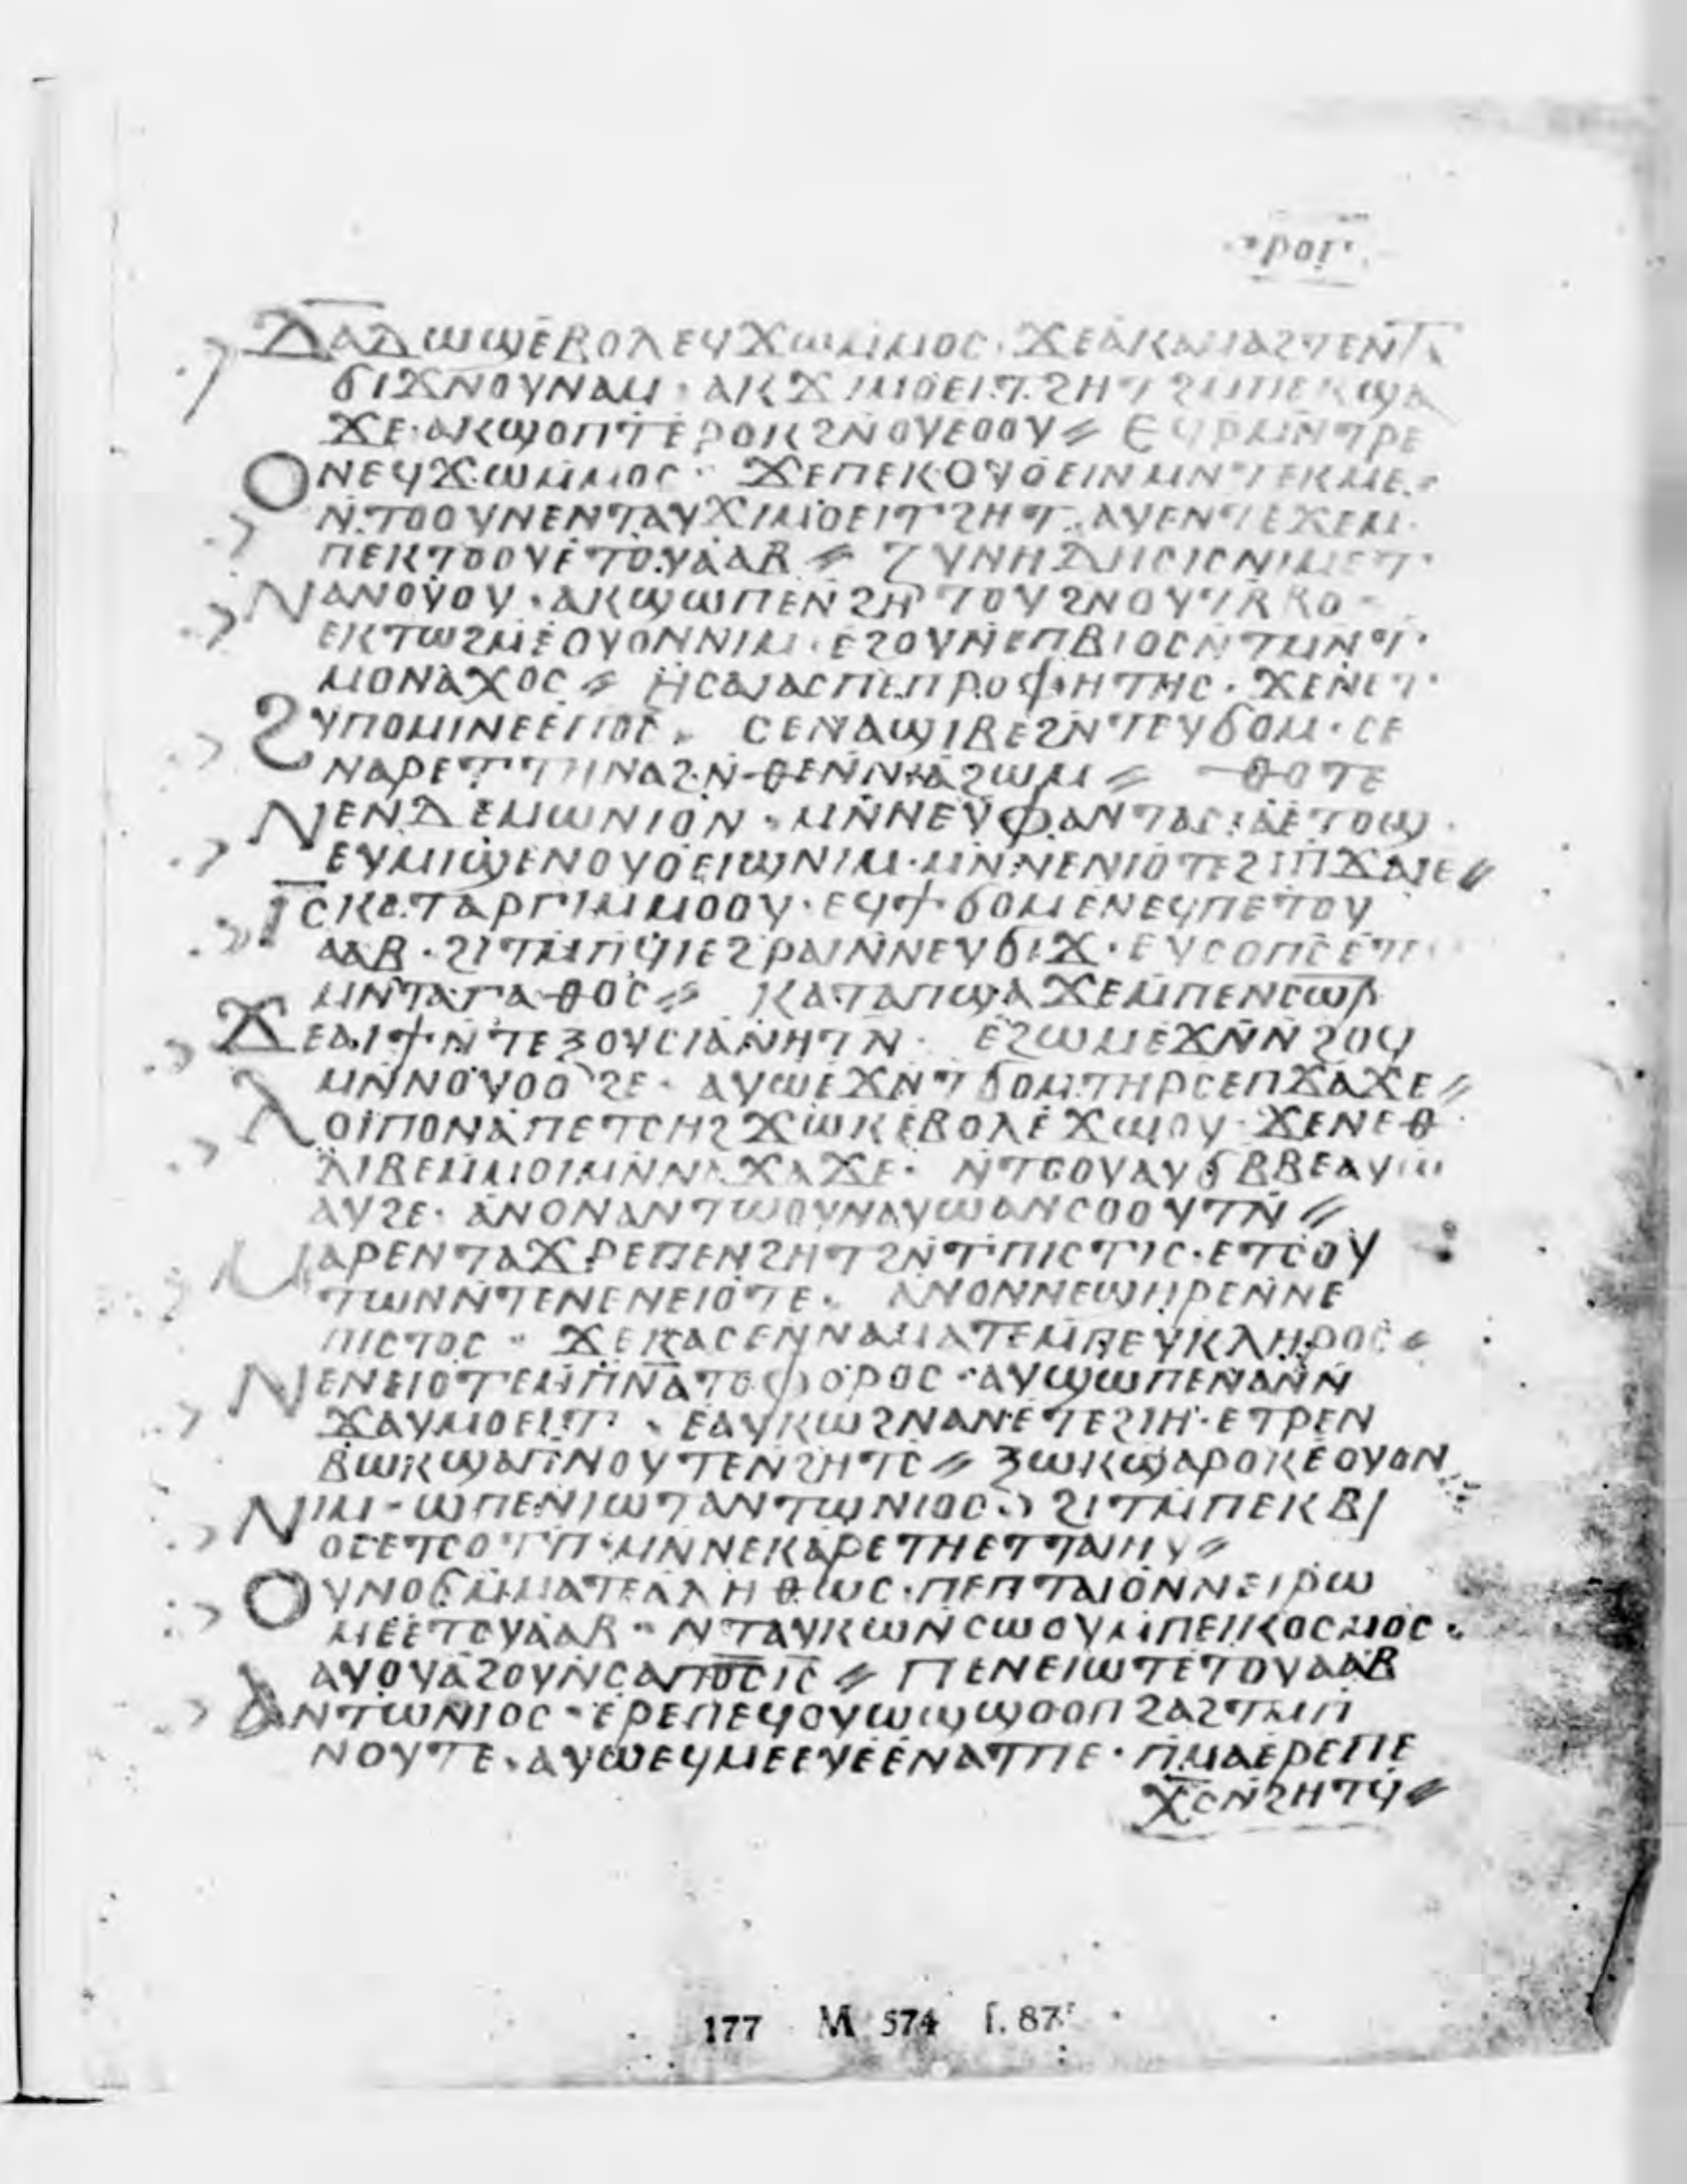 ⲣⲟⲅ
ⲇⲁⲇ ⲱϣ ⲉⲃⲟⲗ ⲉϥϫⲱ ⲙⲙⲟⲥ· ϫⲉ ⲁⲕⲁⲙⲁϩⲧⲉ ⲛⲧⲁ
ϭⲓϫ ⲛⲟⲩⲛⲁⲙ· ⲁⲕϫⲓⲙⲟⲉⲓⲧ ϩⲏⲧ ϩⲙ ⲡⲉⲕϣⲁ
ϫⲉ· ⲁⲕϣⲟⲡⲧ ⲉⲣⲟⲕ ϩⲛ ⲟⲩⲉⲟⲟⲩ⸗ ⲉϥⲣⲙⲛⲧⲣⲉ
ⲟⲛ ⲉϥϫⲱ ⲙⲙⲟⲥ· ϫⲉ ⲡⲉⲕⲟⲩⲟⲉⲓⲛ ⲙⲛ ⲧⲉⲕⲙⲉ·
ⲛⲧⲟⲟⲩ ⲛⲉⲛⲧⲁⲩϫⲓⲙⲟⲉⲓⲧ ϩⲏⲧ· ⲁⲩⲉⲛⲧ ⲉϫⲉⲙ
ⲡⲉⲕⲧⲟⲟⲩ ⲉⲧⲟⲩⲁⲁⲃ⸗ ⲍⲩⲛⲏⲇⲏⲥⲓⲥ ⲛⲓⲙ ⲉⲧ
ⲛⲁⲛⲟⲩⲟⲩ· ⲁⲕϣⲱⲡⲉ ⲛϩⲏⲧⲟⲩ ϩⲛ ⲟⲩⲧⲃⲃⲟ
ⲉⲕⲧⲱϩⲙ ⲉⲟⲩⲟⲛ ⲛⲓⲙ· ⲉϩⲟⲩⲛ ⲉⲡⲃⲓⲟⲥ ⲛⲧⲙⲛⲧ
ⲙⲟⲛⲁⲭⲟⲥ⸗ ⲏⲥⲁⲓⲁⲥ ⲡⲉⲡⲣⲟⲫⲏⲧⲏⲥ· ϫⲉ ⲛⲉⲧ
ϩⲩⲡⲟⲙⲓⲛⲉ ⲉⲡⲟⲥ· ⲥⲉⲛⲁϣⲓⲃⲉ ϩⲛ ⲧⲉⲩϭⲟⲙ· ⲥⲉ
ⲛⲁⲣⲉⲧ ⲧⲏⲛⲁϩ ⲛⲑⲉ ⲛⲛⲓⲁϩⲱⲙ⸗ ⲑⲟⲧⲉ
ⲛⲉⲛⲇⲉⲙⲱⲛⲓⲟⲛ· ⲙⲛ ⲛⲉⲩⲫⲁⲛⲧⲁⲥⲓⲁ ⲉⲧⲟϣ·
ⲉⲩⲙⲓϣⲉ ⲛⲟⲩⲟⲉⲓϣ ⲛⲓⲙ· ⲙⲛ ⲛⲉⲛⲓⲟⲧⲉ ϩⲙ ⲡϫⲁⲓⲉ⸗
ⲓⲥ ⲕⲁⲧⲁⲣⲅⲓ ⲙⲙⲟⲟⲩ· ⲉϥϯϭⲟⲙ ⲉⲛⲉϥⲡⲉⲧⲟⲩ
ⲁⲁⲃ· ϩⲓⲧⲙ ⲡϥⲓ ⲉϩⲣⲁⲓ ⲛⲛⲉⲩϭⲓϫ· ⲉⲩⲥⲟⲡⲥ ⲉⲧⲉϥ
ⲙⲛⲧⲁⲅⲁⲑⲟⲥ⸗ ⲕⲁⲧⲁ ⲡϣⲁϫⲉ ⲙⲡⲉⲛⲥⲱⲣ
ϫⲉ ⲁⲓϯ ⲛⲧⲉⲝⲟⲩⲥⲓⲁ ⲛⲏⲧⲛ· ⲉϩⲱⲙ ⲉϫⲛ ⲛϩⲟϥ
ⲙⲛ ⲛⲟⲩⲟⲟϩⲉ· ⲁⲩⲱ ⲉϫⲛ ⲧϭⲟⲙ ⲧⲏⲣⲥ ⲉⲡϫⲁϫⲉ⸗
ⲗⲟⲓⲡⲟⲛ ⲁⲡⲉⲧⲥⲏϩ ϫⲱⲕ ⲉⲃⲟⲗ ⲉϫⲱⲟⲩ· ϫⲉ ⲛⲉⲑ
ⲗⲓⲃⲉ ⲙⲙⲟⲓ ⲙⲛ ⲛⲁϫⲁϫⲉ· ⲛⲧⲟⲟⲩ ⲁⲩϭⲃⲃⲉ ⲁⲩⲱ
ⲁⲩϩⲉ· ⲁⲛⲟⲛ ⲁⲛⲧⲱⲟⲩⲛ ⲁⲩⲱ ⲁⲛⲥⲟⲟⲩⲧⲛ⸗
ⲙⲁⲣⲉⲛⲧⲁϫⲣⲉ ⲡⲉⲛϩⲏⲧ ϩⲛ ⲧⲡⲓⲥⲧⲓⲥ· ⲉⲧⲥⲟⲩ
ⲧⲱⲛ ⲛⲧⲉ ⲛⲉⲛⲉⲓⲟⲧⲉ· ⲁⲛⲟⲛ ⲛⲉϣⲏⲣⲉ ⲛⲛⲉ
ⲡⲓⲥⲧⲟⲥ· ϫⲉⲕⲁⲥ ⲉⲛⲛⲁⲙⲁⲧⲉ ⲙⲡⲉⲩⲕⲗⲏⲣⲟⲥ⸗
ⲛⲉⲛⲉⲓⲟⲧⲉ ⲙⲡⲛⲁⲧⲟⲫⲟⲣⲟⲥ· ⲁⲩϣⲱⲡⲉ ⲛⲁⲛ ⲛ
ϫⲁⲩⲙⲟⲉⲓⲧ· ⲉⲁⲩⲕⲱϩ ⲛⲁⲛ ⲉⲧⲉϩⲓⲏ· ⲉⲧⲣⲉⲛ
ⲃⲱⲕ ϣⲁ ⲡⲛⲟⲩⲧⲉ ⲛϩⲏⲧⲥ⸗ ⲝⲱⲕ ϣⲁⲣⲟⲕ ⲉⲟⲩⲟⲛ
ⲛⲓⲙ· ⲱ ⲡⲉⲛⲓⲱⲧ ⲁⲛⲧⲱⲛⲓⲟⲥ· ϩⲓⲧⲙ ⲡⲉⲕⲃⲓ
ⲟⲥ ⲉⲧⲥⲟⲧⲡ· ⲙⲛ ⲛⲉⲕⲁⲣⲉⲧⲏ ⲉⲧⲧⲁⲓⲏⲩ⸗
ⲟⲩⲛⲟϭ ⲙⲙⲁⲧⲉ ⲁⲗⲏⲑⲱⲥ· ⲡⲉ ⲡⲧⲁⲓⲟ ⲛⲛⲉⲓⲣⲱ
ⲙⲉ ⲉⲧⲟⲩⲁⲁⲃ· ⲛⲧⲁⲩⲕⲱ ⲛⲥⲱⲟⲩ ⲙⲡⲉⲓⲕⲟⲥⲙⲟⲥ·
ⲁⲩⲟⲩⲁϩⲟⲩ ⲛⲥⲁ ⲡⲟⲥ ⲓⲥ⸗ ⲡⲉⲛⲉⲓⲱⲧ ⲉⲧⲟⲩⲁⲁⲃ
ⲁⲛⲧⲱⲛⲓⲟⲥ· ⲉⲣⲉ ⲡⲉϥⲟⲩⲱϣ ϣⲟⲟⲡ ϩⲁϩⲧⲙ ⲡ
ⲛⲟⲩⲧⲉ· ⲁⲩⲱ ⲉϥⲙⲉⲉⲩⲉ ⲉⲛⲁⲧⲡⲉ· ⲡⲙⲁ ⲉⲣⲉ ⲡⲉ
ⲭⲥ ⲛϩⲏⲧϥ⸗
177 M 574 f. 87r